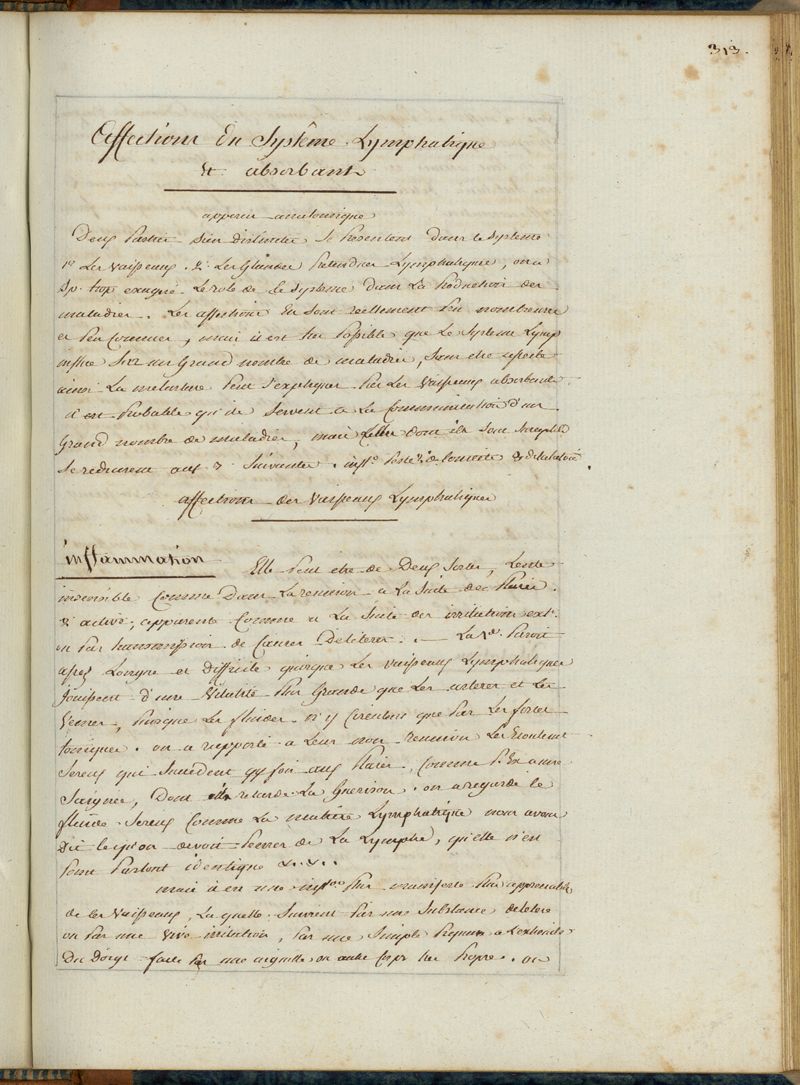 313.
Affections Du Système Lymphatique
& absorbant
apperçu anatomique
Deux Parties bien distinctes Se Presentent dans le Systeme
1º Les Vaisseaux. 2º Les Glandes Lymphatiques, on a
trop exageré Le role de ce Systeme Dans La Production des
maladies. Les affections en Sont reellement Peu nombreuses
et Peu Connues, mais il est tres Possible que Le Systeme Lymp
influe Sur un Grand nombre de maladies, Sans etre affecté
ainsi La metastase Peut S'expliquer Par Les Vaisseaux absorbants
il est Probable qu'ils Servent a La Communication d'un
Grand nombre de maladies, mais Celles dont ils Sont Susceptibles
Se reduisent aux Suivantes.
affections des Vaisseaux Lymphatiques
inflammation Elle Peut etre de Deux Sortes, Lente
insensible Comme Dans La reunion a La Suite des Plaies.
& active, apparente Comme a La Suite des irritations ext.
ou Par transmission de Causes Deleteres. — La 1re Paroit
assez Longue et difficile quoique Les Vaisseaux Lymphatiques
Jouissent d'une Vitalité Plus Grande que Les arteres et Les
Veines, Puisque Les fluides n'y Circulent que Par Les forces
toniques. on a rapporté a Leur non reunion Les Ecoulemens
Sereux qui Succedent qq fois aux Plaies, Comme P. Ex a une
Saignée, Dont ils retarde La Guerison. on a regardé le
fluide Sereux Comme La matiere Lymphatique nous avons
Dit ce qu'on devoit Penser de La Lymphe, qu'elle n'est
Pas Partout identique &. &.
mais il en est une infl.on Plus manifeste Plus appreciable
de ces Vaisseaux, La quelle Survient Par une Substance deletere
ou Par une Vive irritation, Par une Simple Piqure a L'extremité
Du Doigt faite Par une aiguille ou autre Corps tres Propre. on